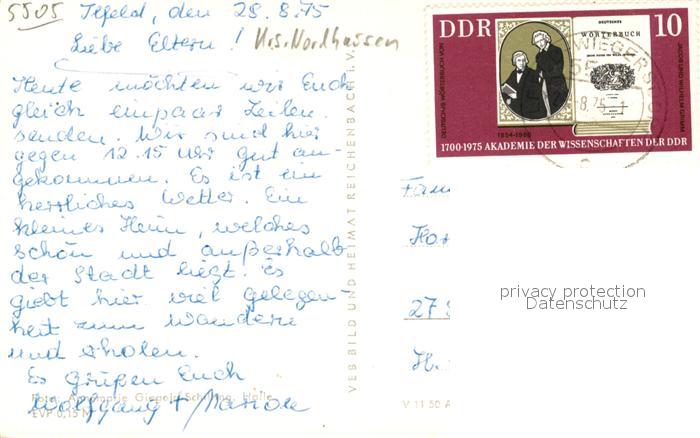 5505 Ilfeld, den 28.8.75
Liebe Eltern! Krs. Nordhausen
Heute möchten wir Euch
gleich ein paar Zeilen
senden. Wir sind hier
gegen 12.15 Uhr gut an-
gekommen. Es ist ein
herrliches Wetter. Ein
kleines Heim, welches
schön und außerhalb
der Stadt liegt. Es
giebt hier viel Gelegen-
heit zum Wandern
und erholen.
Es Grüßen Euch
Wolfgang + Marion
Foto: Halle
EVP 0,15 M
VEB BILD UND HEIMAT REICHENBACH i. V.
V 11 50 A
DDR 10
DEUTSCHES
WÖRTERBUCH
JACOB UND WILHELM GRIMM
1854-1960
1700-1975 AKADEMIE DER WISSENSCHAFTEN DER DDR
WIEGERS
Fam
27
privacy protection
Datenschutz